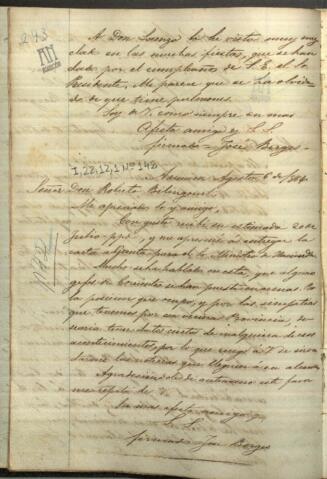 243
A Don Lorenzo le he visto muy muy
en las muchas fiestas, que se han
dado por el cumpleaños de S. E. el Sr.
Presidente. Me parece que se ha olvida-
do de que tiene pulmones.
Soy de V. como siempre su mas
Afecto amigo y S. S.
firmado - José Berges -
I,22,12,1 Nº 148
Asuncion Agosto 6 de 1864.
Señor Don Roberto Billinghurst.
Mi apreciado Sr. y amigo,
Con gusto recibi su estimada 20 de
Julio ppº, y me apresuré á entregar la
carta adjunta para el Sr. Ministro de Hacienda
Mucho se ha hablado en esta, que algunos
gefes de Corrientes se han puesto en armas. En
la posicion que ocupo, y por las simpatias
que tenemos por esa vecina Provincia, de-
searia tener datos ciertos de cualquiera de esos
acontecimientos, por lo que ruego á V. de
las noticias que lleguen á su alcance.
Agradeciendole de antemano este favor
me repito de V.
Su mas afecto amigo y
S. S.
firmado - José Berges